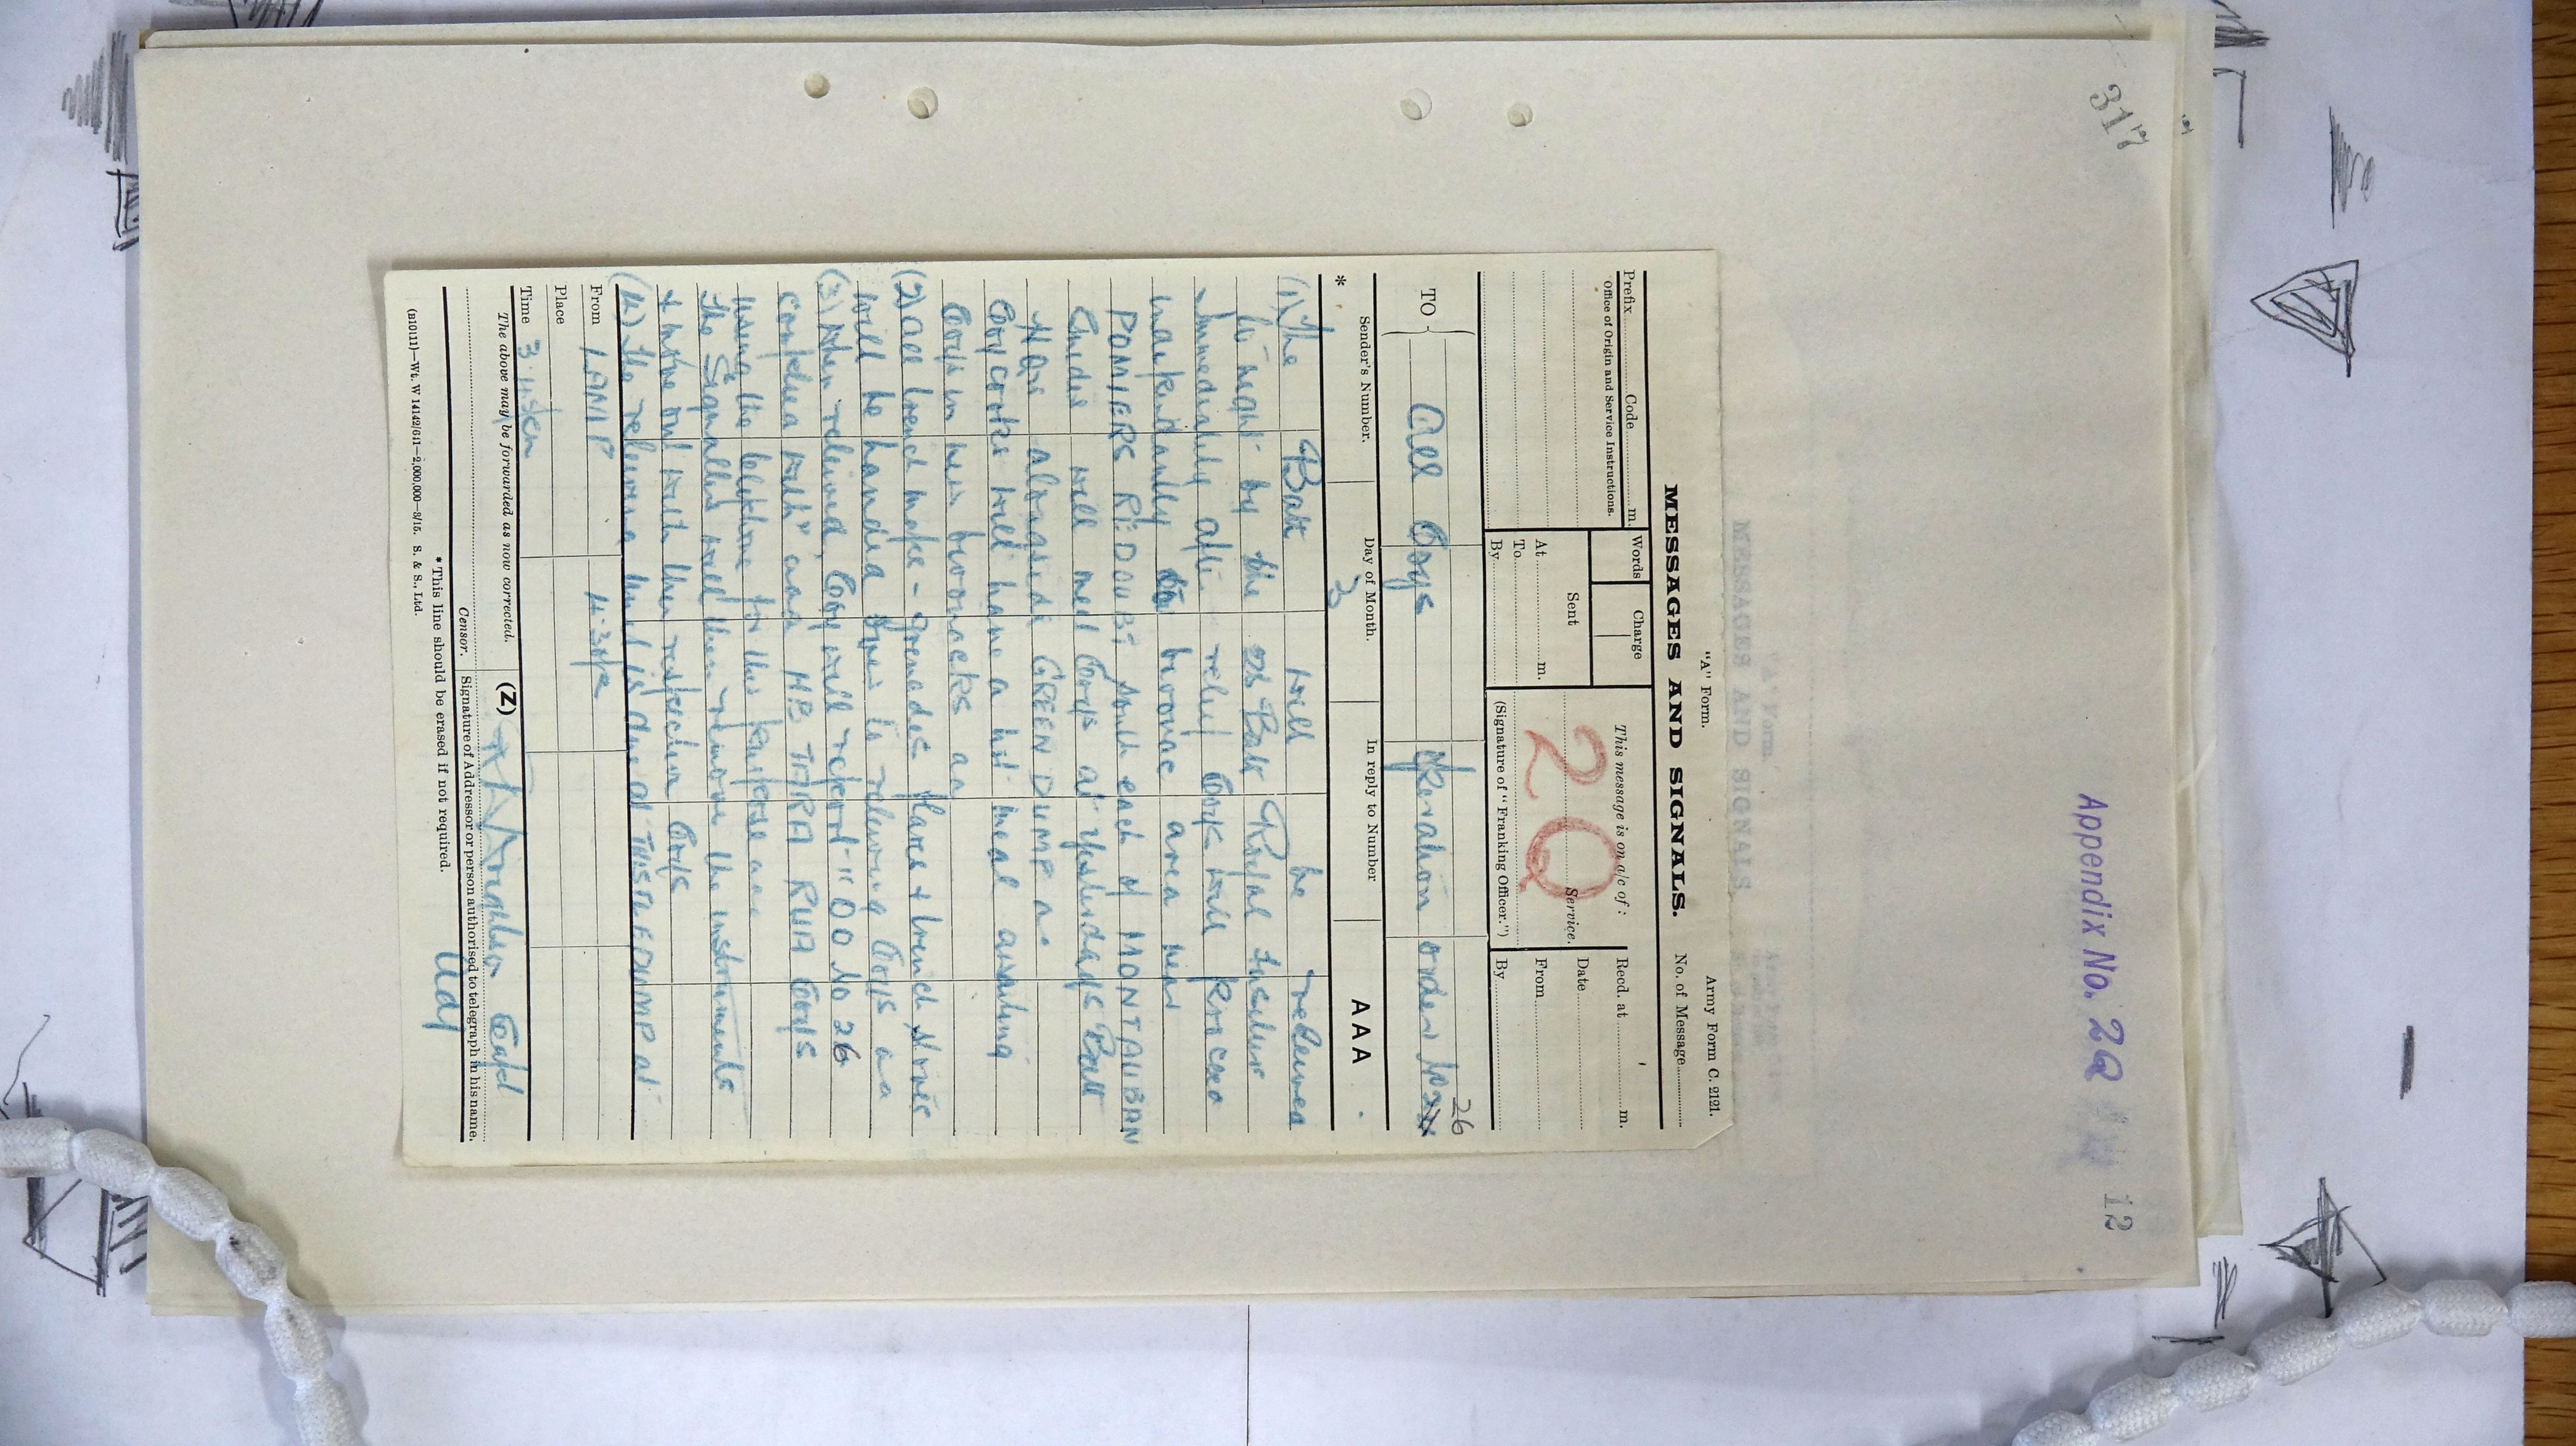 317
Appendix No. 2Q
12
"A" Form.
Army Form C. 2121.
MESSAGES AND SIGNALS.
No. of Message
Prefix Code m.
Words
Charge
This message is on a/c of:
Recd. at m.
Office of Origin and Service Instructions.
Sent
At m.
To
By
2Q
Service.
(Signature of "Franking Officer.")
Date
From
By
TO
All Coys
Operation order No
26
Sender's Number.
Day of Month.
In reply to Number
AAA
*
3
(1) The Batt will be relieved
to night by the 2d Batt Royal Fusiliers
Immediately after relief Coys will proceed
independantly to bivouac area near
POMIERS REDOUBT South east of MONTAUBAN
Guides will meet Coys at yesterdays Batt
HQrs alongside GREEN DUMP
Coy cooks will have a hot meal awaiting
Coys in new bivouacks
(2) All trench maps - grenades flares & trench stores
will be handed over to relieving Coys
(3) When relieved, Coys will report "OO No 26
complied with" and
using the telephone for this purpose
The Signallers will then remove the instruments
& move out with their respective Coys
(4) The relieving unit is due at THISTLE DUMP at
From LAMP
4.30pm
Place
Time 3.45pm
The above may be forwarded as now corrected.
(Z)
Capt
Adj
Censor.
Signature of Addressor or person authorised to telegraph in his name.
* This line should be erased if not required.
(B10111)—Wt. W 14142/641—2,000,000—3/15. S. & S., Ltd.